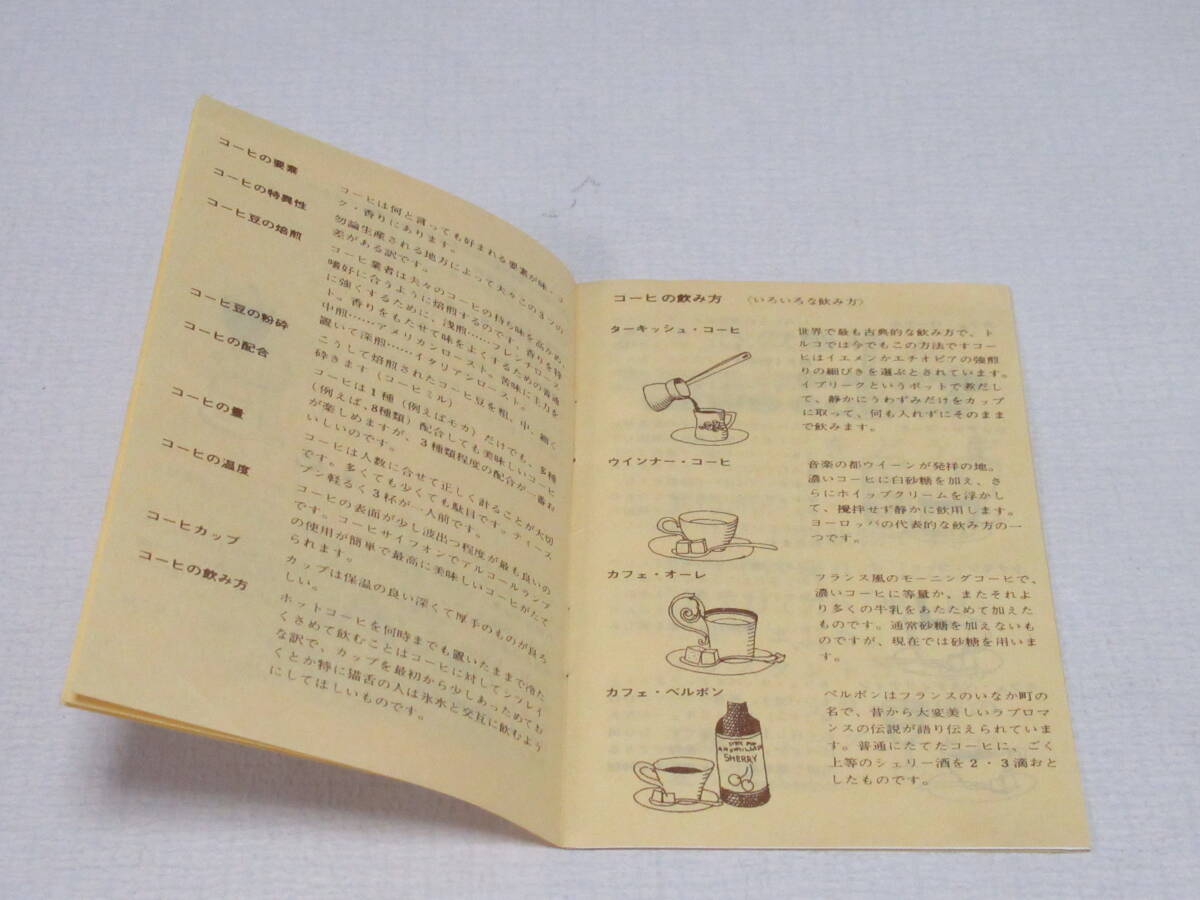 コーヒの要素
コーヒの特異性
コーヒ豆の焙煎
コーヒ豆の粉砕
コーヒの配合
コーヒの量
コーヒの温度
コーヒカップ
コーヒの飲み方
コーヒは何と言っても好まれる要素が味・コ
ク・香りにあります。
勿論生産される地方によって夫々この3つの
差がある訳です。
コーヒ業者は夫々のコーヒの持ち味を高かめ、
嗜好に合うように焙煎するのです。香りを特
に強くするために、浅煎……フレンチロース
ト。香りをもたせて味をよくするための普通
中煎……アメリカンロースト。苦味に主力を
置いて深煎……イタリアンロースト。
こうして焙煎されたコーヒ豆を粗、中、細く
砕きます(コーヒミル)
コーヒは1種(例えばモカ)だけでも、多種
(例えば、8種類)配合しても美味しいコーヒ
が楽しめますが、3種類程度の配合が一番お
いしいのです。
コーヒは人数に合せて正しく計ることが大切
です。多くても少くても駄目です。ティース
プン軽るく3杯が一人前です。
コーヒの表面が少し波出つ程度が最も良いの
です。コーヒサイフォンでアルコールランプ
の使用が簡単で最高に美味しいコーヒがたて
られます。
カップは保温の良い深くて厚手のものが良ろ
しい。
ホットコーヒを何時までも置いたままで冷た
くさめて飲むことはコーヒに対してシツレイ
な訳で、カップを最初から少しあっためても
くとか特に猫舌の人は氷水と交互に飲むよう
にしてほしいものです。
コーヒの飲み方 〈いろいろな飲み方〉
ターキッシュ・コーヒ
世界で最も古典的な飲み方で、ト
ルコでは今でもこの方法ですコー
ヒはイエメンかエチオピアの強煎
りの細びきを選ぶとされています。
イブリークというポットで煮だし
て、静かにうわずみだけをカップ
に取って、何も入れずにそのまま
で飲みます。
ウインナー・コーヒ
音楽の都ウイーンが発祥の地。
濃いコーヒに白砂糖を加え、さ
らにホイップクリームを浮かし
て、攪拌せず静かに飲用します。
ヨーロッパの代表的な飲み方の一
つです。
カフェ・オーレ
フランス風のモーニングコーヒで、
濃いコーヒに等量か、またそれよ
り多くの牛乳をあたためて加えた
ものです。通常砂糖を加えないも
のですが、現在では砂糖を用いま
す。
カフェ・ベルボン
ベルボンはフランスのいなか町の
名で、昔から大変美しいラブロマ
ンスの伝説が語り伝えられていま
す。普通にたてたコーヒに、ごく
上等のシェリー酒を2・3滴おと
したものです。
SHERRY